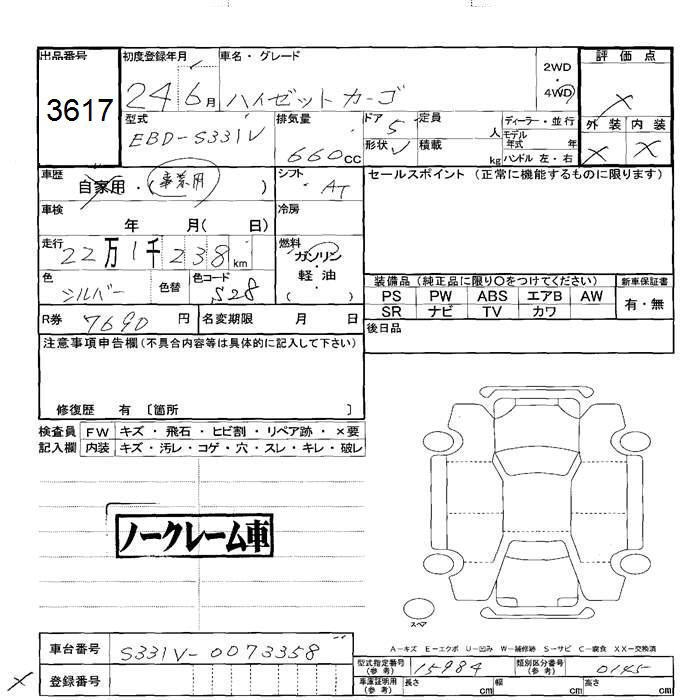 出品番号 初度登録年月 車名・グレード 2WD ・ 4WD 評価点
3617 24 6月 ハイゼットカーゴ ×
型式 EBD-S331V 排気量 660cc ドア 5 定員 人 ディーラー・並行 外装 内装
形状 積載 kg モデル年式 年 ハンドル 左・右 × ×
車歴 自家用・(事業用) シフト AT セールスポイント (正常に機能するものに限ります)
車検 年 月( 日) 冷房
走行 22万1千238km 燃料 ガソリン
軽・油
( )
色 シルバー 色替 色コード S28
装備品 (純正品に限り〇をつけてください) 新車保証書
PS PW ABS エアB AW 有・無
SR ナビ TV カワ
R券 7690 円 名変期限 月 日 後日品
注意事項申告欄(不具合内容等は具体的に記入して下さい)
修復歴 有 〔箇所 〕
検査員 FW キズ・飛石・ヒビ割・リペア跡・×要
記入欄 内装 キズ・汚レ・コゲ・穴・スレ・キレ・破レ
ノークレーム車
スペア
A-キズ E-エクボ U-凹み W-補修跡 S-サビ C-腐食 XX-交換済
車台番号 S331V-0073358 型式指定番号(参考) 15984 類別区分番号(参考) 0145
× 登録番号 車庫証明用(参考) 長さ cm 幅 cm 高さ cm